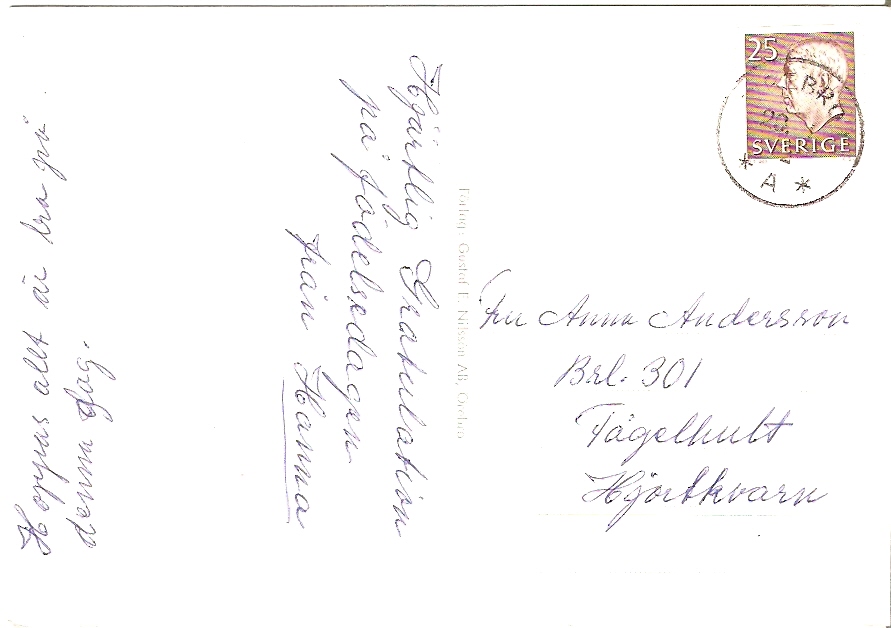 Hjärtlig Gratulation
på födelsedagen
från Hanna
Hoppas allt är bra på
denna dag.
Förlag: Gustaf E. Nilsson AB, Örebro
25
SVERIGE
* A *
Fru Anna Andersson
Brl. 301
Tågelhult
Hjortkvarn